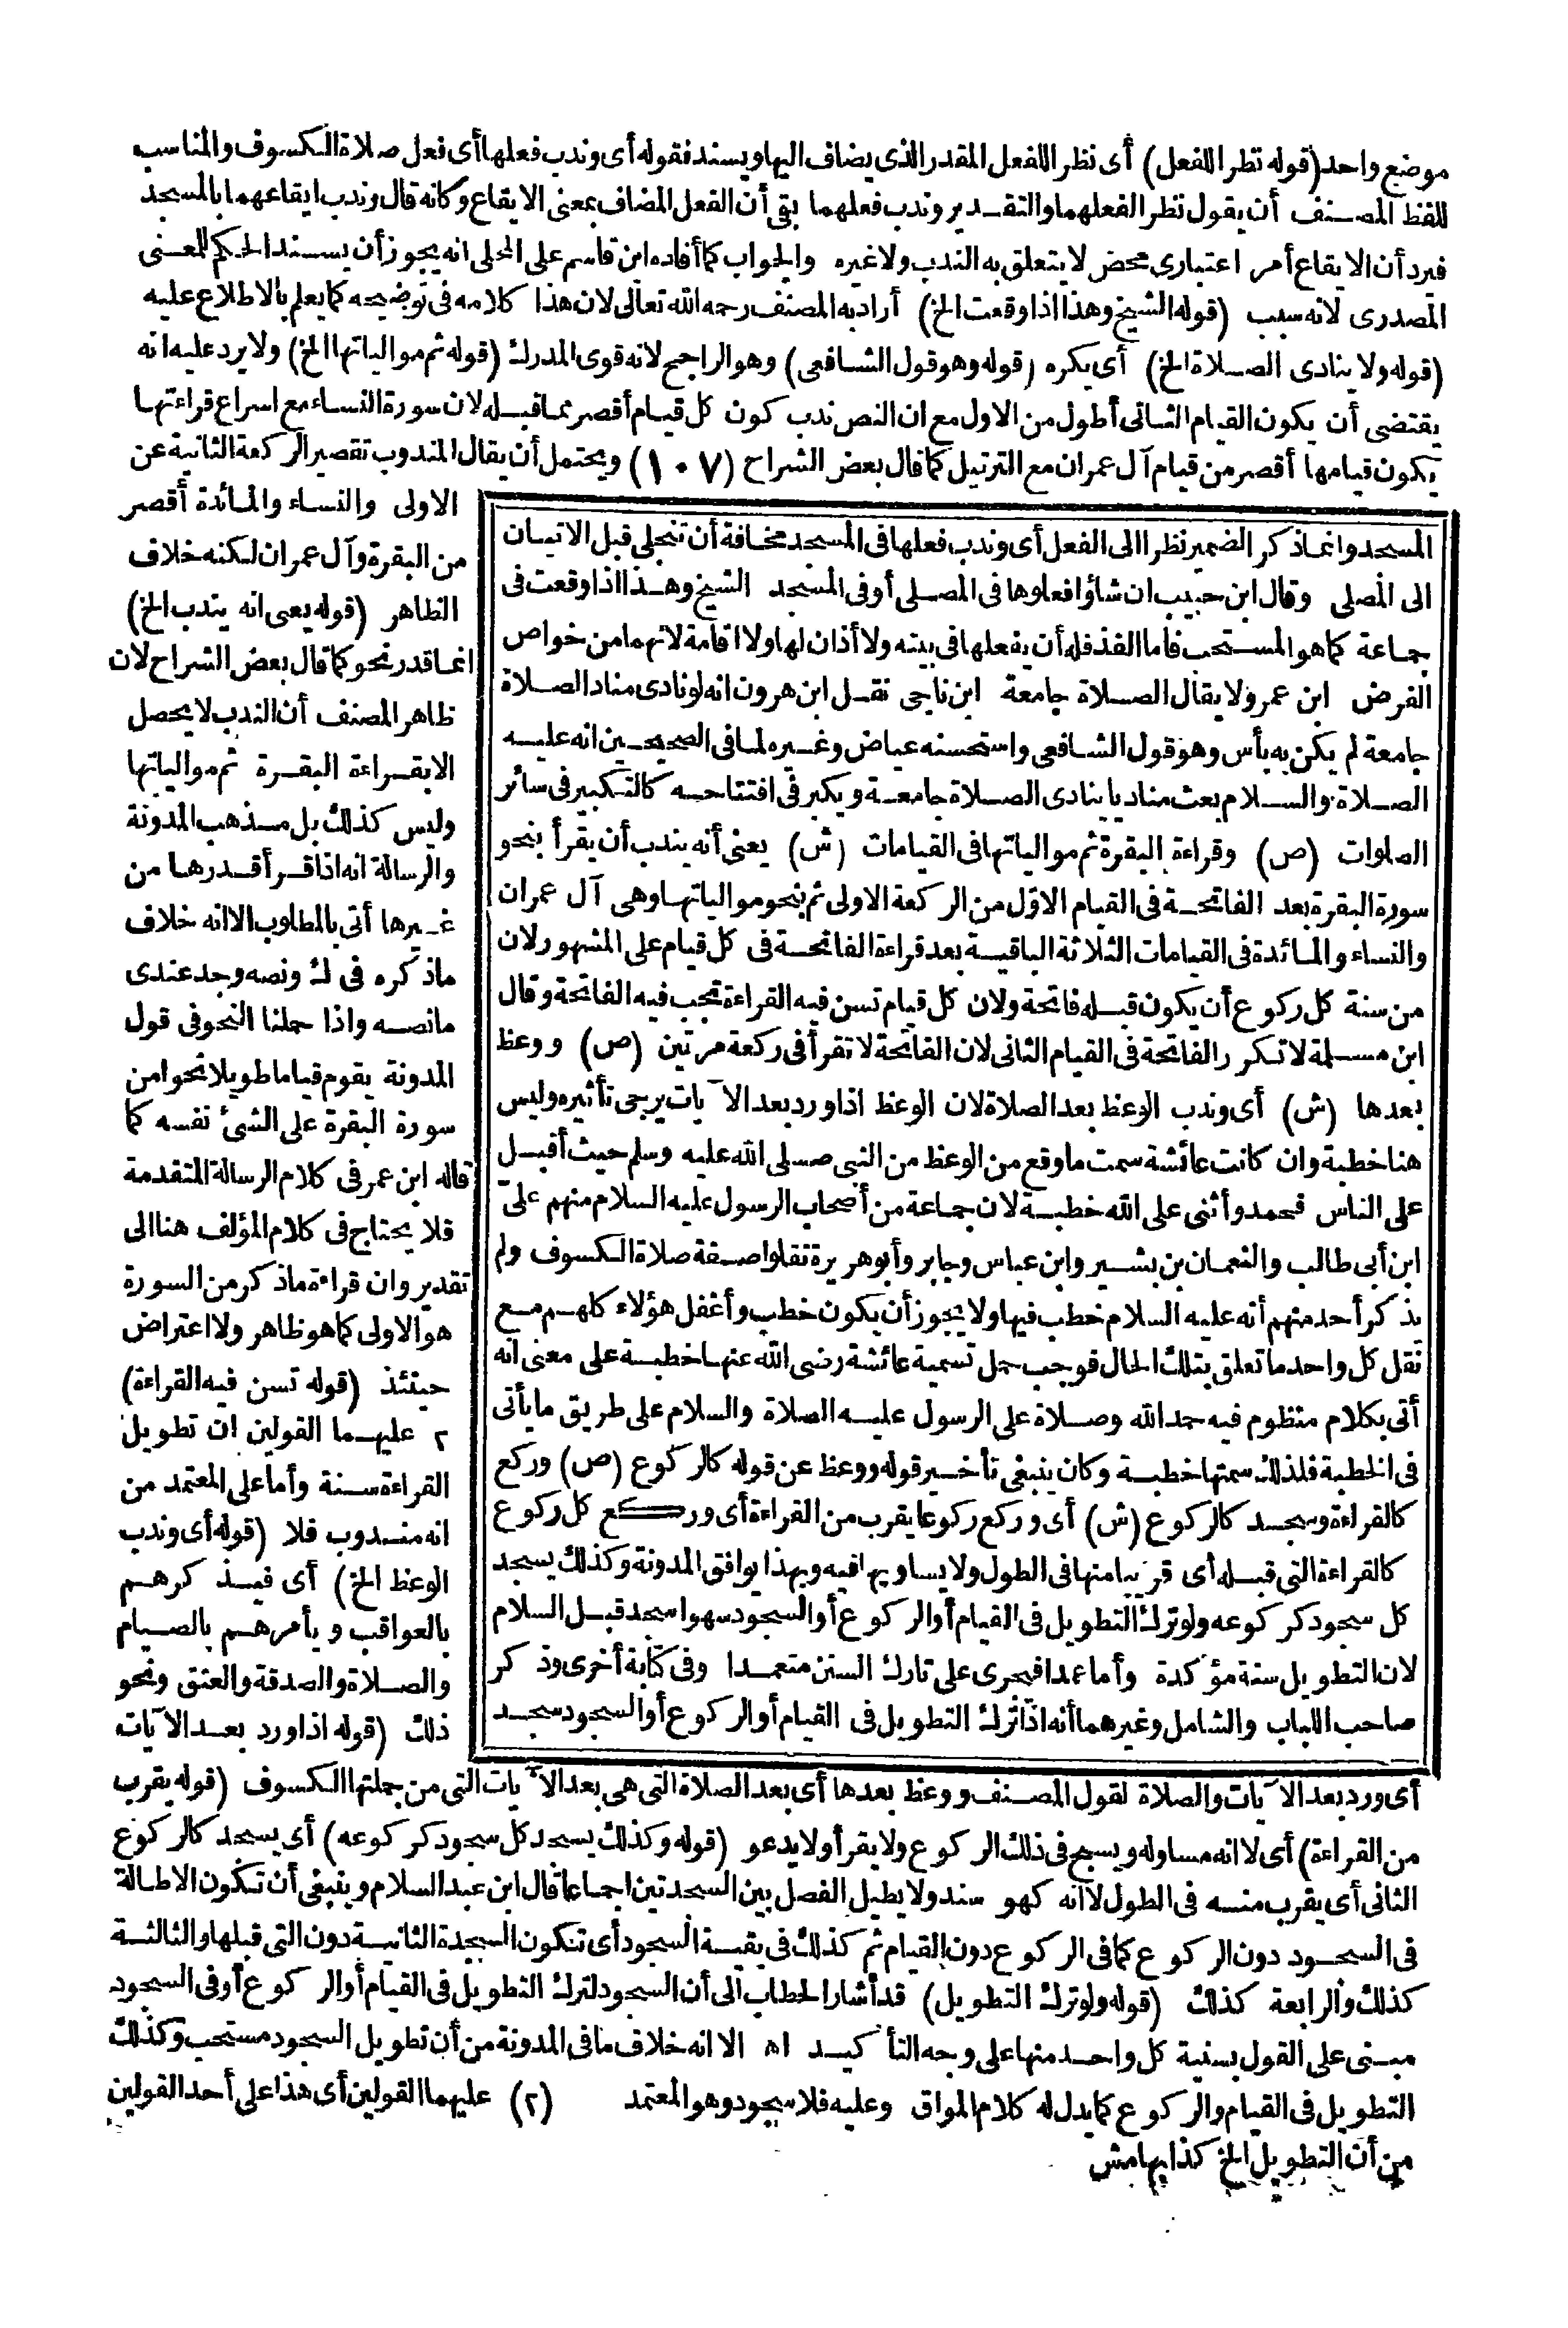 موضع واحد (قوله نظر اللفعل) أى نظر اللفعل المقدر الذى يضاف اليها ويسند فقوله أى وندب فعلها أى فعل صلاة الكسوف والمناسب
للفظ المصنف أن يقول نظر الفعلهما والتقدير وندب فعلهما بقى أن الفعل المضاف بمعنى الايقاع وكانه قال وندب ايقاعهما بالمسجد
فيرد أن الايقاع أمر اعتبارى محض لا يتعلق به الندب ولا غيره والجواب كما أفاده ابن قاسم على المحلى انه يجوز أن يسند الحكم للمعنى
المصدرى لانه سبب (قوله الشيخ وهذا اذا وقعت الخ) أراد به المصنف رحمه الله تعالى لان هذا كلامه فى توضيحه كما يعلم بالاطلاع عليه
(قوله ولا ينادى الصلاة الخ) أى يكره (قوله وهو قول الشافعى) وهو الراجح لانه قوى المدرك (قوله ثم موالياتها الخ) ولا يرد عليه انه
يقتضى أن يكون القيام الثانى أطول من الاول مع ان النص ندب كون كل قيام أقصر مما قبله لان سورة النساء مع اسراع قراءتها
يكون قيامها أقصر من قيام آل عمران مع الترتيل كما قال بعض الشراح (١٠٧) ويحتمل أن يقال المندوب تقصير الركعة الثانية عن
الاولى والنساء والمائدة أقصر
من البقرة وآل عمران لكنه خلاف
الظاهر (قوله يعنى انه يندب الخ)
انما قدر نحو كما قال بعض الشراح لان
ظاهر المصنف أن الندب لا يحصل
الا بقراءة البقرة ثم موالياتها
وليس كذلك بل مذهب المدونة
والرسالة انه اذا قرأ قدرها من
غيرها أتى بالمطلوب الا انه خلاف
ما ذكره فى ك ونصه وجد عندى
ما نصه واذا حملنا النحو فى قول
المدونة يقوم قياما طويلا نحوا من
سورة البقرة على الشئ نفسه كما
قاله ابن عمر فى كلام الرسالة المتقدمة
فلا يحتاج فى كلام المؤلف هنا الى
تقدير وان قراءة ما ذكر من السورة
هو الاولى كما هو ظاهر ولا اعتراض
حينئذ (قوله تسن فيه القراءة)
٢ عليهما القولين ان تطويل
القراءة سنة وأما على المعتمد من
انه مندوب فلا (قوله أى وندب
الوعظ الخ) أى فيذكرهم
بالعواقب ويأمرهم بالصيام
والصلاة والصدقة والعتق ونحو
ذلك (قوله اذا ورد بعد الآيات
المسجد وانما ذكر الضمير نظرا الى الفعل أى وندب فعلها فى المسجد مخافة أن تنجلى قبل الاتيان
الى المصلى وقال ابن حبيب ان شاؤا فعلوها فى المصلى أو فى المسجد الشيخ وهذا اذا وقعت فى
جماعة كما هو المستحب فأما الفذ فله أن يفعلها فى بيته ولا أذان لها ولا اقامة لانهما من خواص
الفرض ابن عمر ولا يقال الصلاة جامعة ابن ناجى نقل ابن هرون انه لو نادى مناد الصلاة
جامعة لم يكن به بأس وهو قول الشافعى واستحسنه عياض وغيره لما فى الصحيحين انه عليه
الصلاة والسلام بعث مناديا ينادى الصلاة جامعة ويكبر فى افتتاحه كالتكبير فى سائر
الصلوات (ص) وقراءة البقرة ثم موالياتها فى القيامات (ش) يعنى أنه يندب أن يقرأ بنحو
سورة البقرة بعد الفاتحة فى القيام الاول من الركعة الاولى ثم بنحو موالياتها وهى آل عمران
والنساء والمائدة فى القيامات الثلاثة الباقية بعد قراءة الفاتحة فى كل قيام على المشهور لان
من سنة كل ركوع أن يكون قبله فاتحة ولان كل قيام تسن فيه القراءة تجب فيه الفاتحة وقال
ابن مسلمة لا تكرر الفاتحة فى القيام الثانى لان الفاتحة لا تقرأ فى ركعة مرتين (ص) ووعظ
بعدها (ش) أى وندب الوعظ بعد الصلاة لان الوعظ اذا ورد بعد الآيات يرجى تأثيره وليس
هنا خطبة وان كانت عائشة سمت ما وقع من الوعظ من النبى صلى الله عليه وسلم حيث أقبل
على الناس فحمد وأثنى على الله خطبة لان جماعة من أصحاب الرسول عليه السلام منهم علىّ
ابن أبى طالب والنعمان بن بشير وابن عباس وجابر وأبو هريرة نقلوا صفة صلاة الكسوف ولم
يذكر أحد منهم أنه عليه السلام خطب فيها ولا يجوز أن يكون خطب وأغفل هؤلاء كلهم مع
نقل كل واحد ما تعلق بتلك الحال فوجب حمل تسمية عائشة رضى الله عنها خطبة على معنى انه
أتى بكلام منظوم فيه حمد الله وصلاة على الرسول عليه الصلاة والسلام على طريق ما يأتى
فى الخطبة فلذلك سمتها خطبة وكان ينبغى تأخير قوله ووعظ عن قوله كالركوع (ص) وركع
كالقراءة وسجد كالركوع (ش) أى وركع ركوعا يقرب من القراءة أى وركع كل ركوع
كالقراءة التى قبله أى قريبا منها فى الطول ولا يساويها فيه وبهذا يوافق المدونة وكذلك يسجد
كل سجود كركوعه ولو ترك التطويل فى القيام أو الركوع أو السجود سهوا سجد قبل السلام
لان التطويل سنة مؤكدة وأما عمدا فيجرى على تارك السنن متعمدا وفى كتابة أخرى وذكر
صاحب اللباب والشامل وغيرهما أنه اذا ترك التطويل فى القيام أو الركوع أو السجود سجد
أى ورد بعد الآيات والصلاة لقول المصنف ووعظ بعدها أى بعد الصلاة التى هى بعد الآيات التى من جملتها الكسوف (قوله يقرب
من القراءة) أى لا انه مساو له ويسبح فى ذلك الركوع ولا يقرأ ولا يدعو (قوله وكذلك يسجد كل سجود كركوعه) أى يسجد كالركوع
الثانى أى يقرب منه فى الطول لا أنه كهو سند ولا يطيل الفصل بين السجدتين اجماعا قال ابن عبد السلام وينبغى أن تكون الاطالة
فى السجود دون الركوع كما فى الركوع دون القيام ثم كذلك فى بقية السجود أى تكون السجدة الثانية دون التى قبلها والثالثة
كذلك والرابعة كذلك (قوله ولو ترك التطويل) قد أشار الحطاب الى أن السجود لترك التطويل فى القيام أو الركوع أو فى السجود
مبنى على القول بسنية كل واحد منها على وجه التأكيد اه الا انه خلاف ما فى المدونة من أن تطويل السجود مستحب وكذلك
التطويل فى القيام والركوع كما يدل له كلام المواق وعليه فلا سجود وهو المعتمد (٢) عليهما القولين أى هذا على أحد القولين
من أن التطويل الخ كذا بهامش